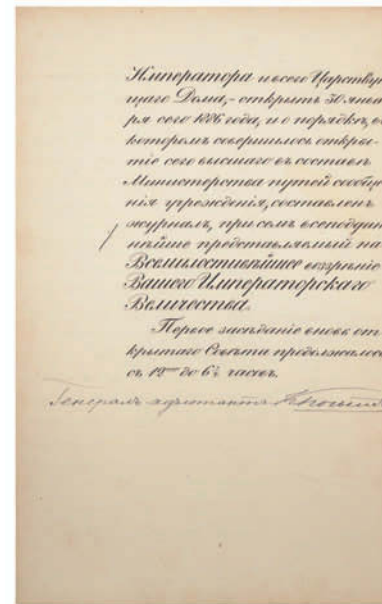 Императора и всего Царствую
щаго Дома,- открытъ 30 янва
ря сего 1886 года, и о порядкѣ, въ
которомъ совершилось откры-
тіе сего высшаго въ составѣ
Министерства путей сообще
нія учрежденія, составленъ
журналъ, при семъ всеподдан
нѣйше представляемый на
Всемилостивѣйшее воззрѣніе
Вашего Императорскаго
Величества.
Первое засѣданіе вновь от
крытаго Совѣта продолжалось
съ 12 до 6½ часовъ.
Генералъ адъютантъ